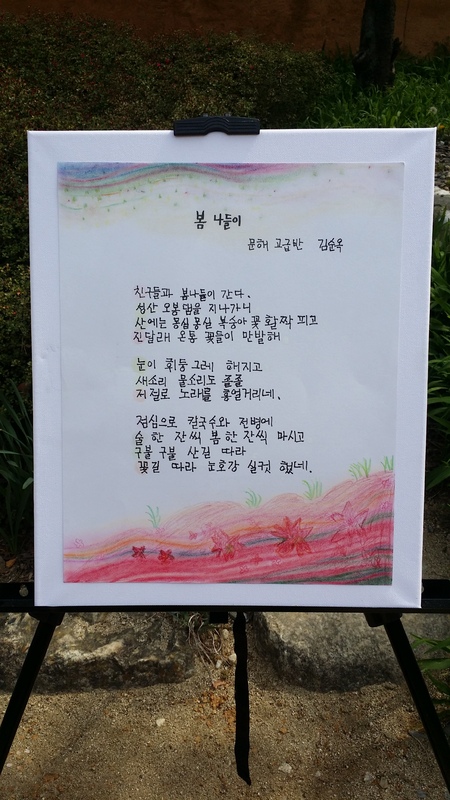 봄 나들이
문해 고급반 김순옥
친구들과 봄나들이 간다.
성산 오봉댐을 지나가니
산에는 몽실몽실 복숭아 꽃 활짝 피고
진달래 온통 꽃들이 만발해
눈이 휘둥그레 해지고
새소리 물소리도 졸졸
저절로 노래를 흥얼거리네.
점심으로 칼국수와 전병에
술 한 잔씩 봄 한 잔씩 마시고
구불구불 산길 따라
꽃길 따라 눈호강 실컷 했네.